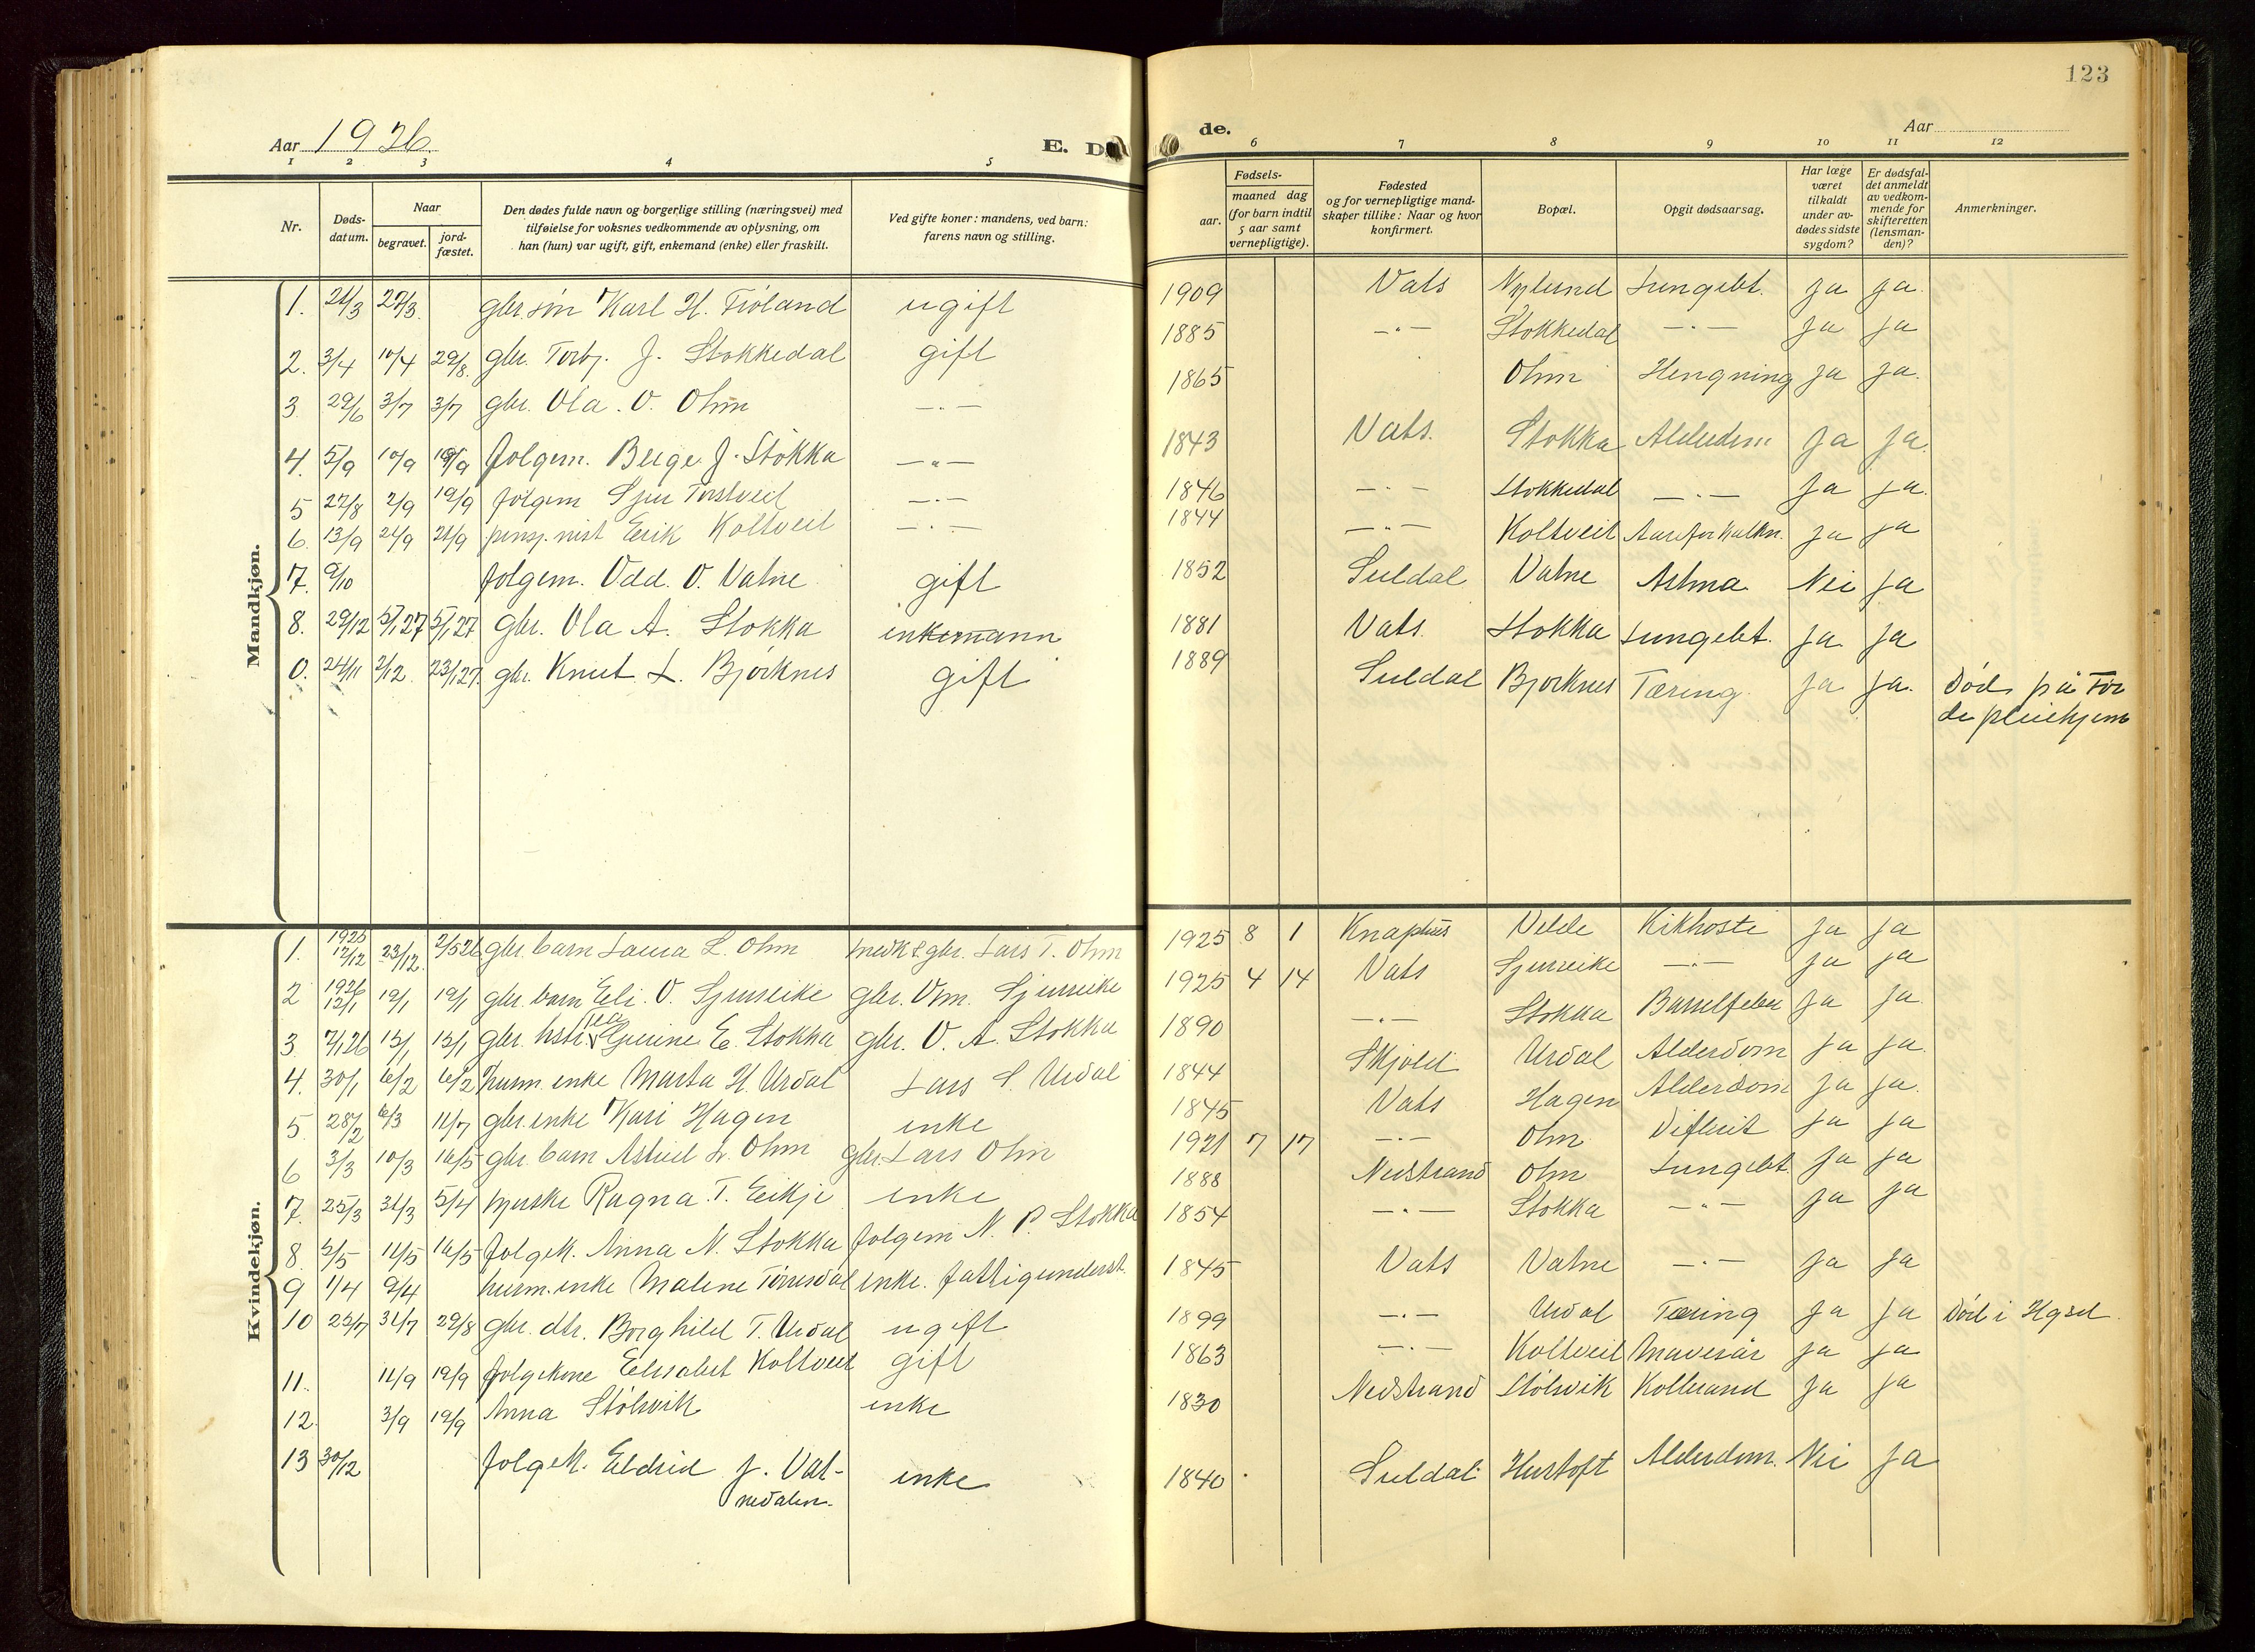 123
Aar 1926.
E. Dø
de.
Aar
1 2 3 4 5
6 7 8 9 10 11 12
Nr.
Døds-
datum.
Naar
begravet.
jord-
fæstet.
Den dødes fulde navn og borgerlige stilling (næringsvei) med
tilføielse for voksnes vedkommende av oplysning, om
han (hun) var ugift, gift, enkemand (enke) eller fraskilt.
Ved gifte koner: mandens, ved barn:
farens navn og stilling.
Fødsels-
aar.
maaned dag
(for barn indtil
5 aar samt
vernepligtige).
Fødested
og for vernepligtige mand-
skaper tillike: Naar og hvor
konfirmert.
Bopæl.
Opgit dødsaarsag.
Har læge
været
tilkaldt
under av-
dødes sidste
sygdom?
Er dødsfal-
det anmeldt
av vedkom-
mende for
skifteretten
(lensman-
den)?
Anmerkninger.
Mandkjøn.
1. 21/3 27/3. gbr. søn Karl H. Tioland ugift 1909 Vats Nylund Lungebt. Ja Ja.
2. 3/4 10/4 29/8. gbr. Torbj. J. Stokkedal gift 1885 -"- Stokkedal -"- Ja Ja
3 29/6 3/7 3/7 gbr. Ola. O. Ohm -"- 1865 Ohm Hengning Ja Ja.
4. 5/9 10/9 19/9 folgem. Berge J. Stokka -"- 1843 Vats. Stokka Alderdom Ja Ja.
5 27/8 2/9 19/9 folgem Sjur Torstveit -"- 1846 -"- Stokkedal -"- Ja Ja.
6. 13/9 21/9 21/9 Eirik Koltveit -"- 1844 -"- Koltveit Aareforkalkn. Ja Ja
7. 9/10 folgem. Odd. O. Vatne gift 1852 Suldal Vatne Astma Nei Ja
8. 29/12 5/1 27 5/1 27 gbr. Ola A. Stokka enkemann 1881 Vats Stokka Lungebt. Ja Ja
0. 24/11 2/12. 23/1 27. gbr. Knut L. Bjørknes gift 1889 Suldal Bjorknes Tæring. Ja Ja. Død på Før
de pleiehjem
Kvindekjøn.
1. 1925 17/12 23/12. 2/5 26 gbr. barn Laura L. Ohm gbr. Lars T. Ohm 1925 8 1 Knaphus Velde Kikhoste Ja Ja
2 1926 12/1 19/1 19/1 gbr. barn Eli. O. Sjurseike gbr. Om. Sjurseike 1925 4 14 Vats Sjurseike -"- Ja Ja
3. 7/1 26 13/1 13/1 gbr. hstr. E. Stokka gbr. O. A. Stokka 1890 -"- Stokka Barselfeber Ja Ja.
4. 30/1 6/2 6/2 husm. enke Marta H. Urdal Lars S. Urdal 1844 Skjold Urdal Alderdom Ja Ja.
5 28/2 6/3 11/7 gbr. enke Kari Hagen enke 1845 Vats Hagen Alderdom Ja Ja.
6 3/3 10/3 16/5 gbr. barn Astrid L. Ohm gbr. Lars Ohm 1921 7 17 -"- Ohm Difterit Ja Ja
7. 25/3 31/3 5/4 Ragna. T. Eikje enke 1888 Nedstrand Ohm Lungebt. Ja Ja
8. 5/5 11/5 16/5 folgek. Anna N. Stokka folgem N. P. Stokka 1854 -"- Stokka -"- Ja Ja
9 1/4 9/4 husm. enke Malene Tørresdal enke. fattigunderst. 1845 Vats Vatne -"- Ja Ja
10 25/7 31/7 29/8 gbr. dtr. Borghild T. Urdal ugift 1899 -"- Urdal Tæring Ja Ja Død i Hgsd.
11. 11/9 19/9 folgekone Elisabet Koltveit gift 1863 -"- Koltveit Mavesår Ja Ja
12. 3/9 19/9 Anna Stölsvik enke 1830 Nedstrand Stölsvik Koldbrand Ja Ja
13 30/12 folgek. Eldrid J. Vat-
nedalen. enke 1840 Suldal Hustoft Alderdom. Nei Ja